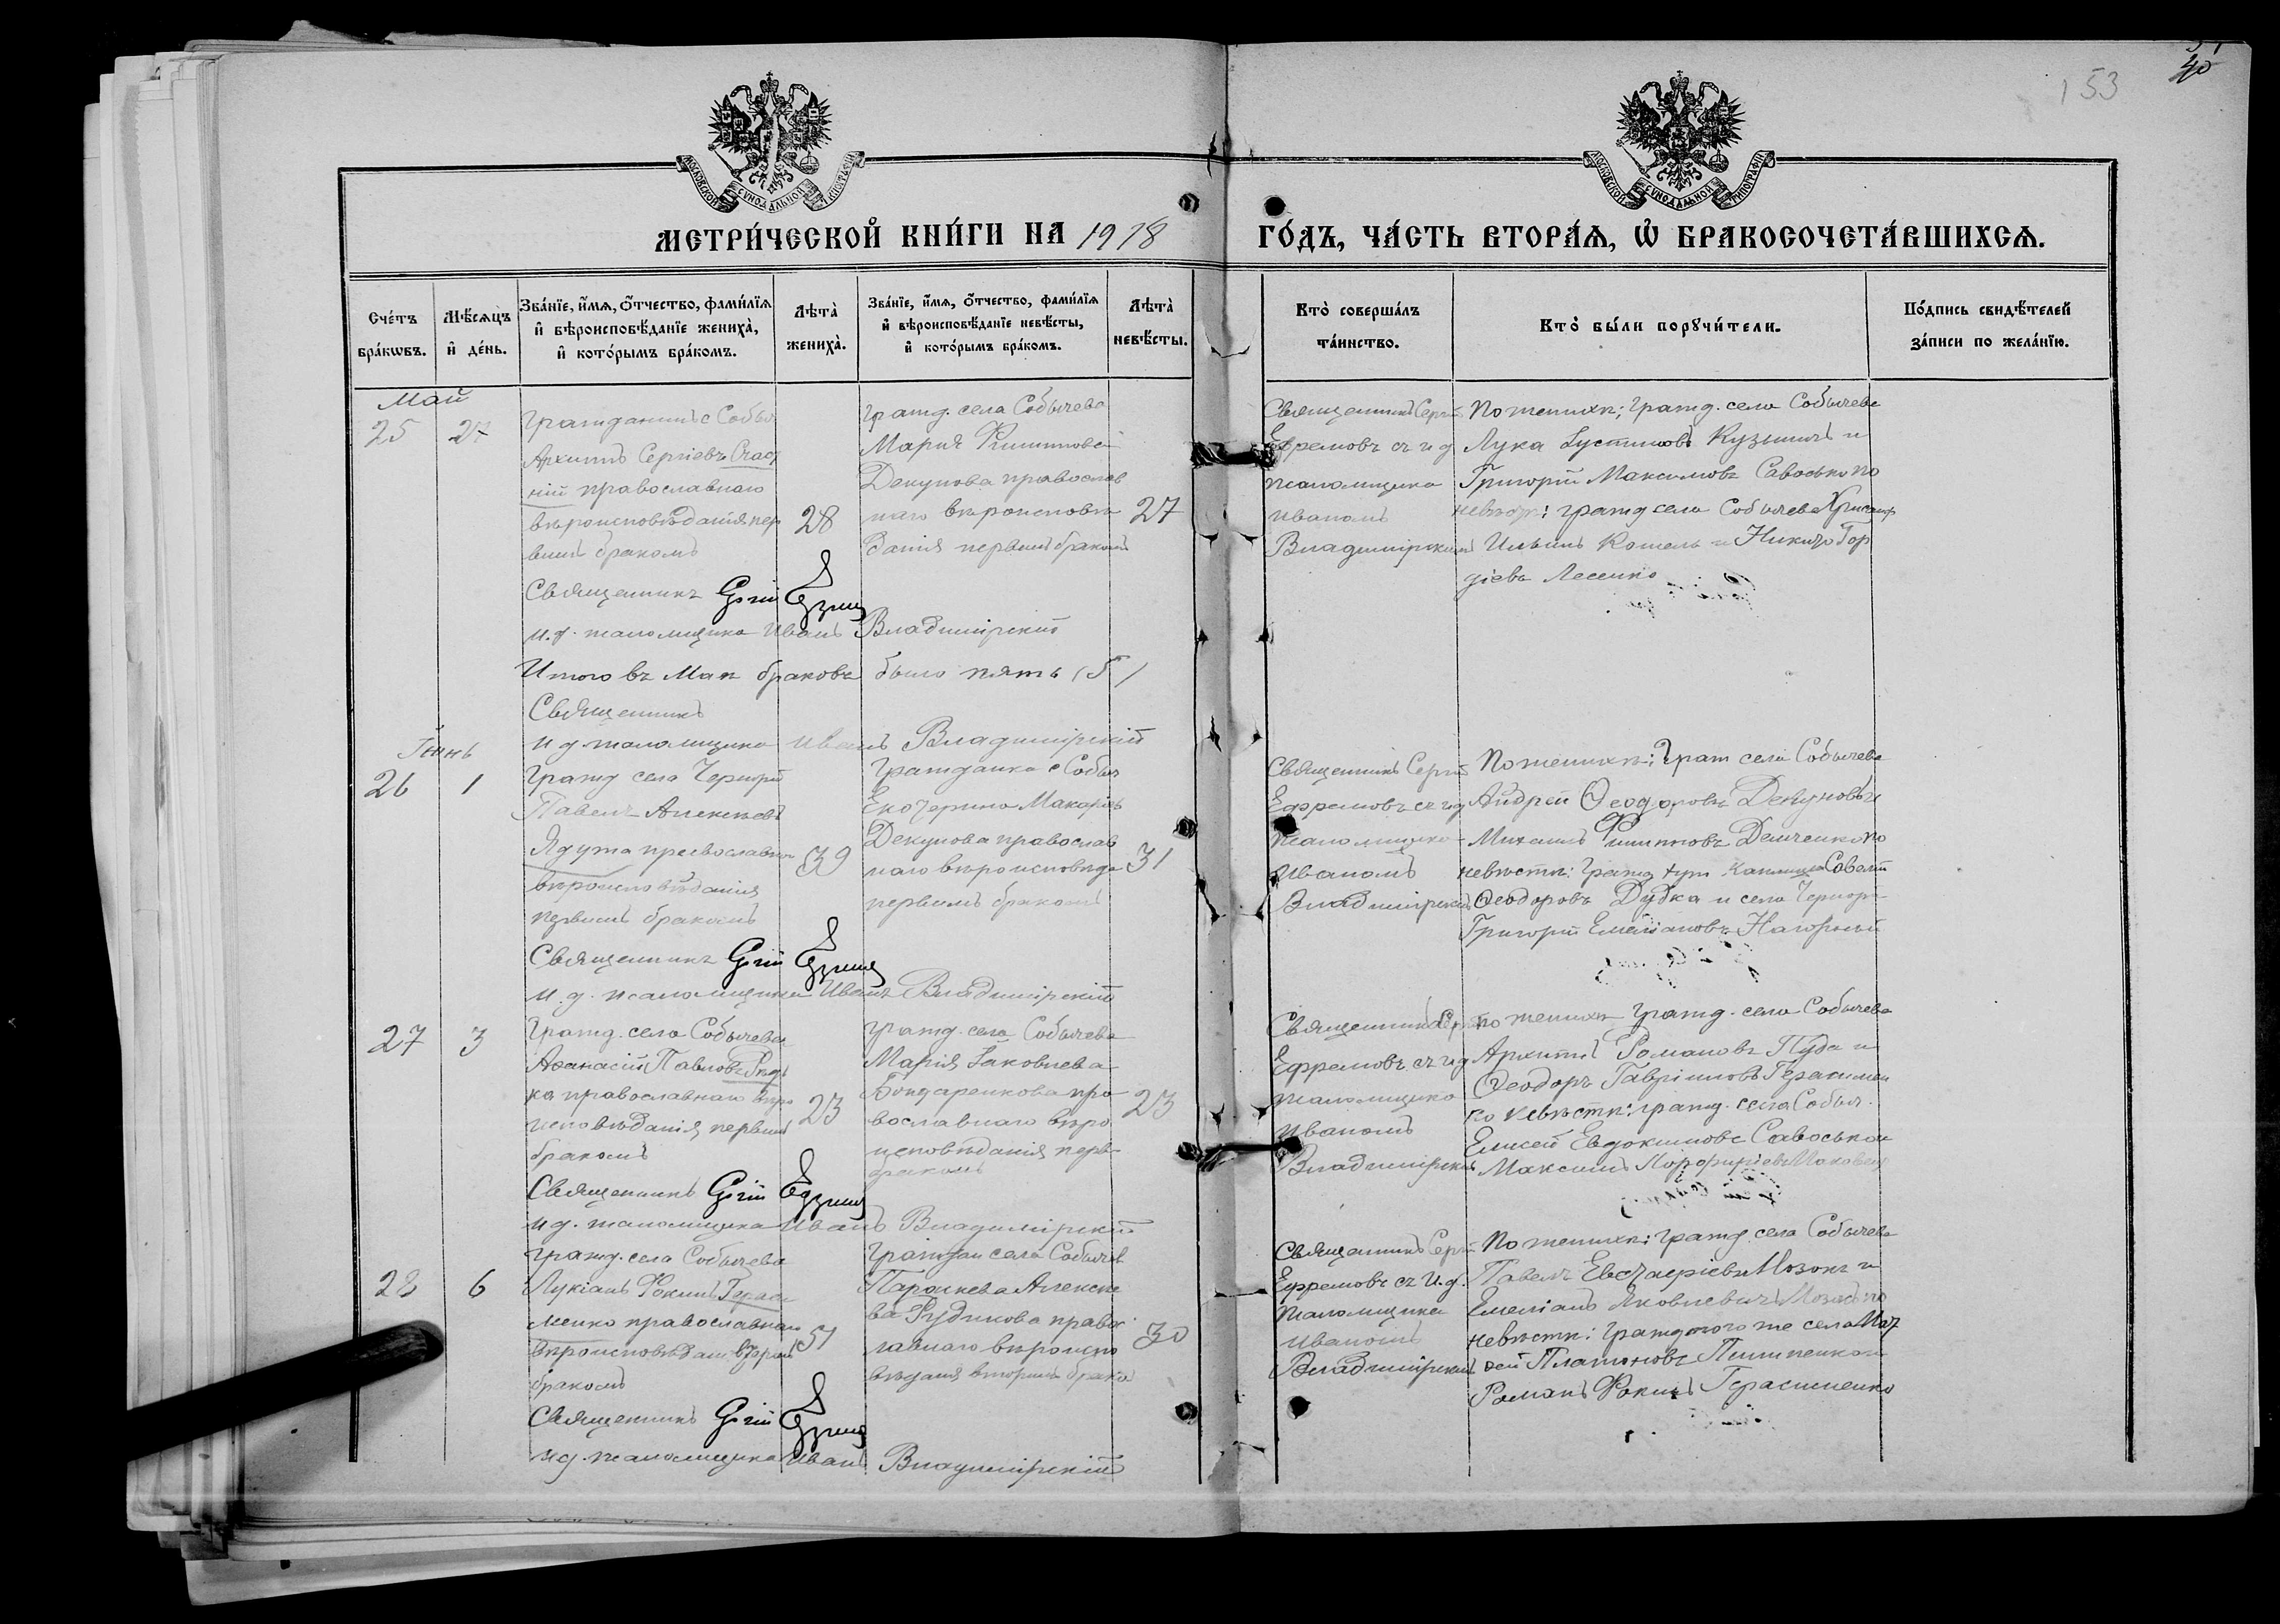 153
40
МОСКОВСКОЙ СѴНОДАЛЬНОЙ ТИПОГРАФІИ
МОСКОВСКОЙ СѴНОДАЛЬНОЙ ТИПОГРАФІИ
МЕТРИ́ЧЕСКОЙ КНИ́ГИ НА 1918
ГО́ДЪ, ЧА́СТЬ ВТОРА́Я, Ѡ БРАКОСОЧЕТА́ВШИХСЯ.
Сче́тъ бра́кѡвъ.
Мѣ́сяцъ и де́нь.
Зва́нїе, и́мя, о́тчество, фами́лїя
и вѣроисповѣ́данїе жениха̀,
и кото́рымъ бра́комъ.
Лѣта̀ жениха̀.
Зва́нїе, и́мя, о́тчество, фами́лїя
и вѣроисповѣ́данїе невѣ́сты,
и кото́рымъ бра́комъ.
Лѣта̀ невѣ́сты.
Кто̀ соверша́лъ та́инство.
Кто̀ бы́ли порꙋчи́тели.
По́дпись свидѣ́телей
за́писи по жела́нїю.
Май
25
27
Гражданинъ с Собыч
Архипъ Сергіевъ
ній православнаго
вѣроисповѣданія пер
вымъ бракомъ
28
Гражд. села Собычева
Марія Филиппова
Декунова православ
наго вѣроисповѣ
данія первымъ бракомъ
27
Священникъ Сергій
Ефремовъ съ и д
псаломщика
Иваномъ
Владимірскимъ
По женихѣ: гражд. села Собычева
Лука Іустиновъ Кузьминъ и
Григорій Максимовъ Савосько по
невѣстѣ: гражд села Собычева
Ильинъ Кошель и Никита Гор
діевъ Лесенко
Священникъ
и. д. псаломщика Иванъ Владимірскій
Итого въ Маѣ браковъ было пять (5)
Священникъ
и д псаломщика Иванъ Владимірскій
Іюнь
26
1
Гражд села Черторій
Павелъ Алексѣевъ
Ядута православна
вѣроисповѣданія
первымъ бракомъ
39
Гражданка с Собыч
Екатерина Макаріев
Декунова православ
наго вѣроисповѣда
первымъ бракомъ
31
Священникъ Сергій
Ефремовъ съ и д
псаломщика
Иваномъ
Владимірскимъ
По женихѣ: Граж села Собычева
Андрей Ѳеодоровъ Декуновъ и
Михаилъ Филипповъ Демченко по
невѣстѣ: Гражд
Ѳеодоровъ Дудка и села Черторі
Григорій Емеліановъ Нагорный
Священникъ
и. д. псаломщика Иванъ Владимірскій
27
3
Гражд. села Собычева
Аѳанасій Павловъ Рѣдь
ка православнаго вѣро
исповѣданія первымъ
бракомъ
23
гражд. села Собычева
Марія Іаковлева
Бондаренкова пра
вославнаго вѣро
исповѣданія перв
бракомъ
23
Священникъ Сергій
Ефремовъ съ и д
псаломщика
Иваномъ
Владимірскимъ
по женихѣ гражд. села Собычева
Архипъ Романовъ Пуда и
Ѳеодоръ Гавріиловъ Герасимен
ко невѣстѣ: гражд. села Собыч.
Елисей Евдокимовъ Савоськои
Максимъ Порфиріевъ
Священникъ
и д. псаломщика Иванъ Владимірскій
28
6
Гражд. села Собычева
Лукіанъ Фокинъ Гераси
менко православнаго
вѣроисповѣдан вторым
бракомъ
51
Граждан села Собычев
Параскева Алексѣе
ва Рудикова правос
лавнаго вѣроиспо
вѣданія вторымъ брако
30
Священникъ Сергій
Ефремовъ съ и. д.
псаломщика
Иваномъ
Владимірскимъ
По женихѣ: гражд села Собычева
Павелъ Евстаѳіевъ Мозокъ и
Емеліанъ Яковлевичъ Мозокъ по
невѣстѣ: Гражд того же села Мат
ѳей Платоновъ Пилипенко и
Романъ Фокинъ Герасименко
Священникъ
и д. псаломщика Иванъ Владимірскій